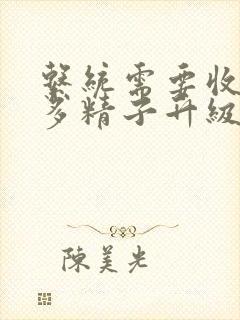 系統需要收
多精子升級
陳美光